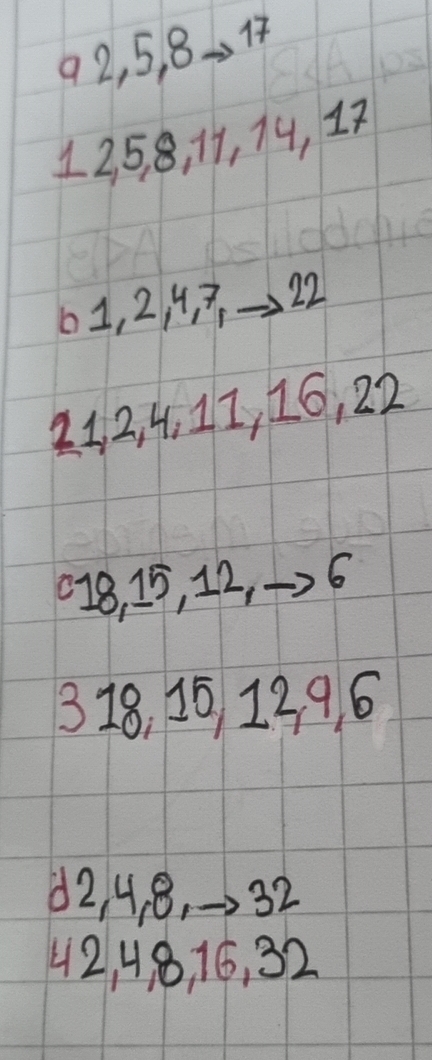 a 2,5,8→17
1 2,5,8,11,14,17
b 1,2,4,7,→22
2 1,2,4,11,16,22
c 18,15,12,→6
3 18,15,12,9,6
d 2,4,8,→32
4 2,4,8,16,32